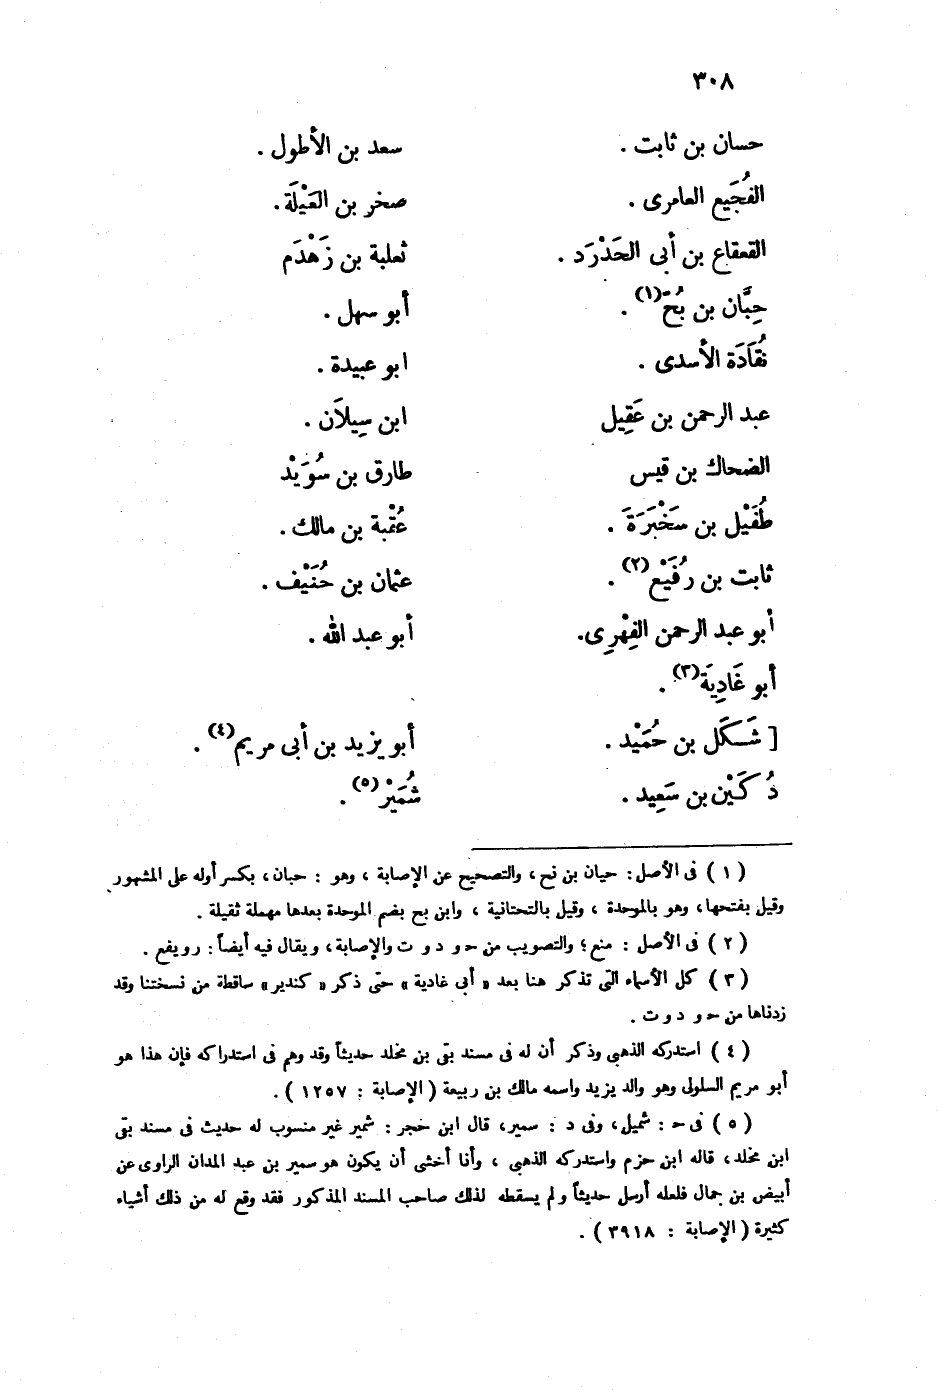 ٣٠٨
حسان بن ثابت . سعد بن الأطول .
الفُجَيع العامرى . صخر بن العَيْلَة .
القعقاع بن أبى الحَدْرَد . ثعلبة بن زَهْدَم
حِبَّان بن بُحّ(١) . أبو سهل .
نُقَادَة الأسدى . ابو عبيدة .
عبد الرحمن بن عَقِيل ابن سِيلاَن .
الضحاك بن قيس طارق بن سُوَيْد
طُفَيْل بن سَخْبَرَةَ . عُتْبة بن مالك .
ثابت بن رُفَيْع(٢) . عثمان بن حُنَيْف .
أبو عبد الرحمن الفِهْرِى . أبو عبد الله .
أبو غَادِيَة(٣) .
[ شَـكَل بن حُمَيْد . أبو يزيد بن أبى مريم(٤) .
دُكَيْن بن سَعِيد . شُمَيْر(٥) .
( ١ ) فى الأصل : حيان بن نح ، والتصحيح عن الإصابة ، وهو : حبان ، بكسر أوله على المشهور
وقيل بفتحها ، وهو بالموحدة ، وقيل بالتحتانية ، وابن بح بضم الموحدة بعدها مهملة ثقيلة .
( ٢ ) فى الأصل : منع ؛ والتصويب من ح و د و ت والإصابة ، ويقال فيه أيضاً : رويفع .
( ٣ ) كل الأسماء التى تذكر هنا بعد « أبى غادية » حتى ذكر « كندير » ساقطة من نسختنا وقد
زدناها من ح و د و ت .
( ٤ ) استدركه الذهبى وذكر أن له فى مسند بقى بن مخلد حديثاً وقد وهم فى استدراكه فإن هذا هو
أبو مريم السلولى وهو والد يزيد واسمه مالك بن ربيعة ( الإصابة : ١٢٥٧ ) .
( ٥ ) فى ح : شميل ، وفى د : سمير ، قال ابن حجر : شمير غير منسوب له حديث فى مسند بقى
ابن مخلد ، قاله ابن حزم واستدركه الذهبى ، وأنا أخشى أن يكون هو سمير بن عبد المدان الراوى عن
أبيض بن حمال فلعله أرسل حديثاً ولم يسقطه لذلك صاحب المسند المذكور فقد وقع له من ذلك أشياء
كثيرة ( الإصابة : ٣٩١٨ ) .